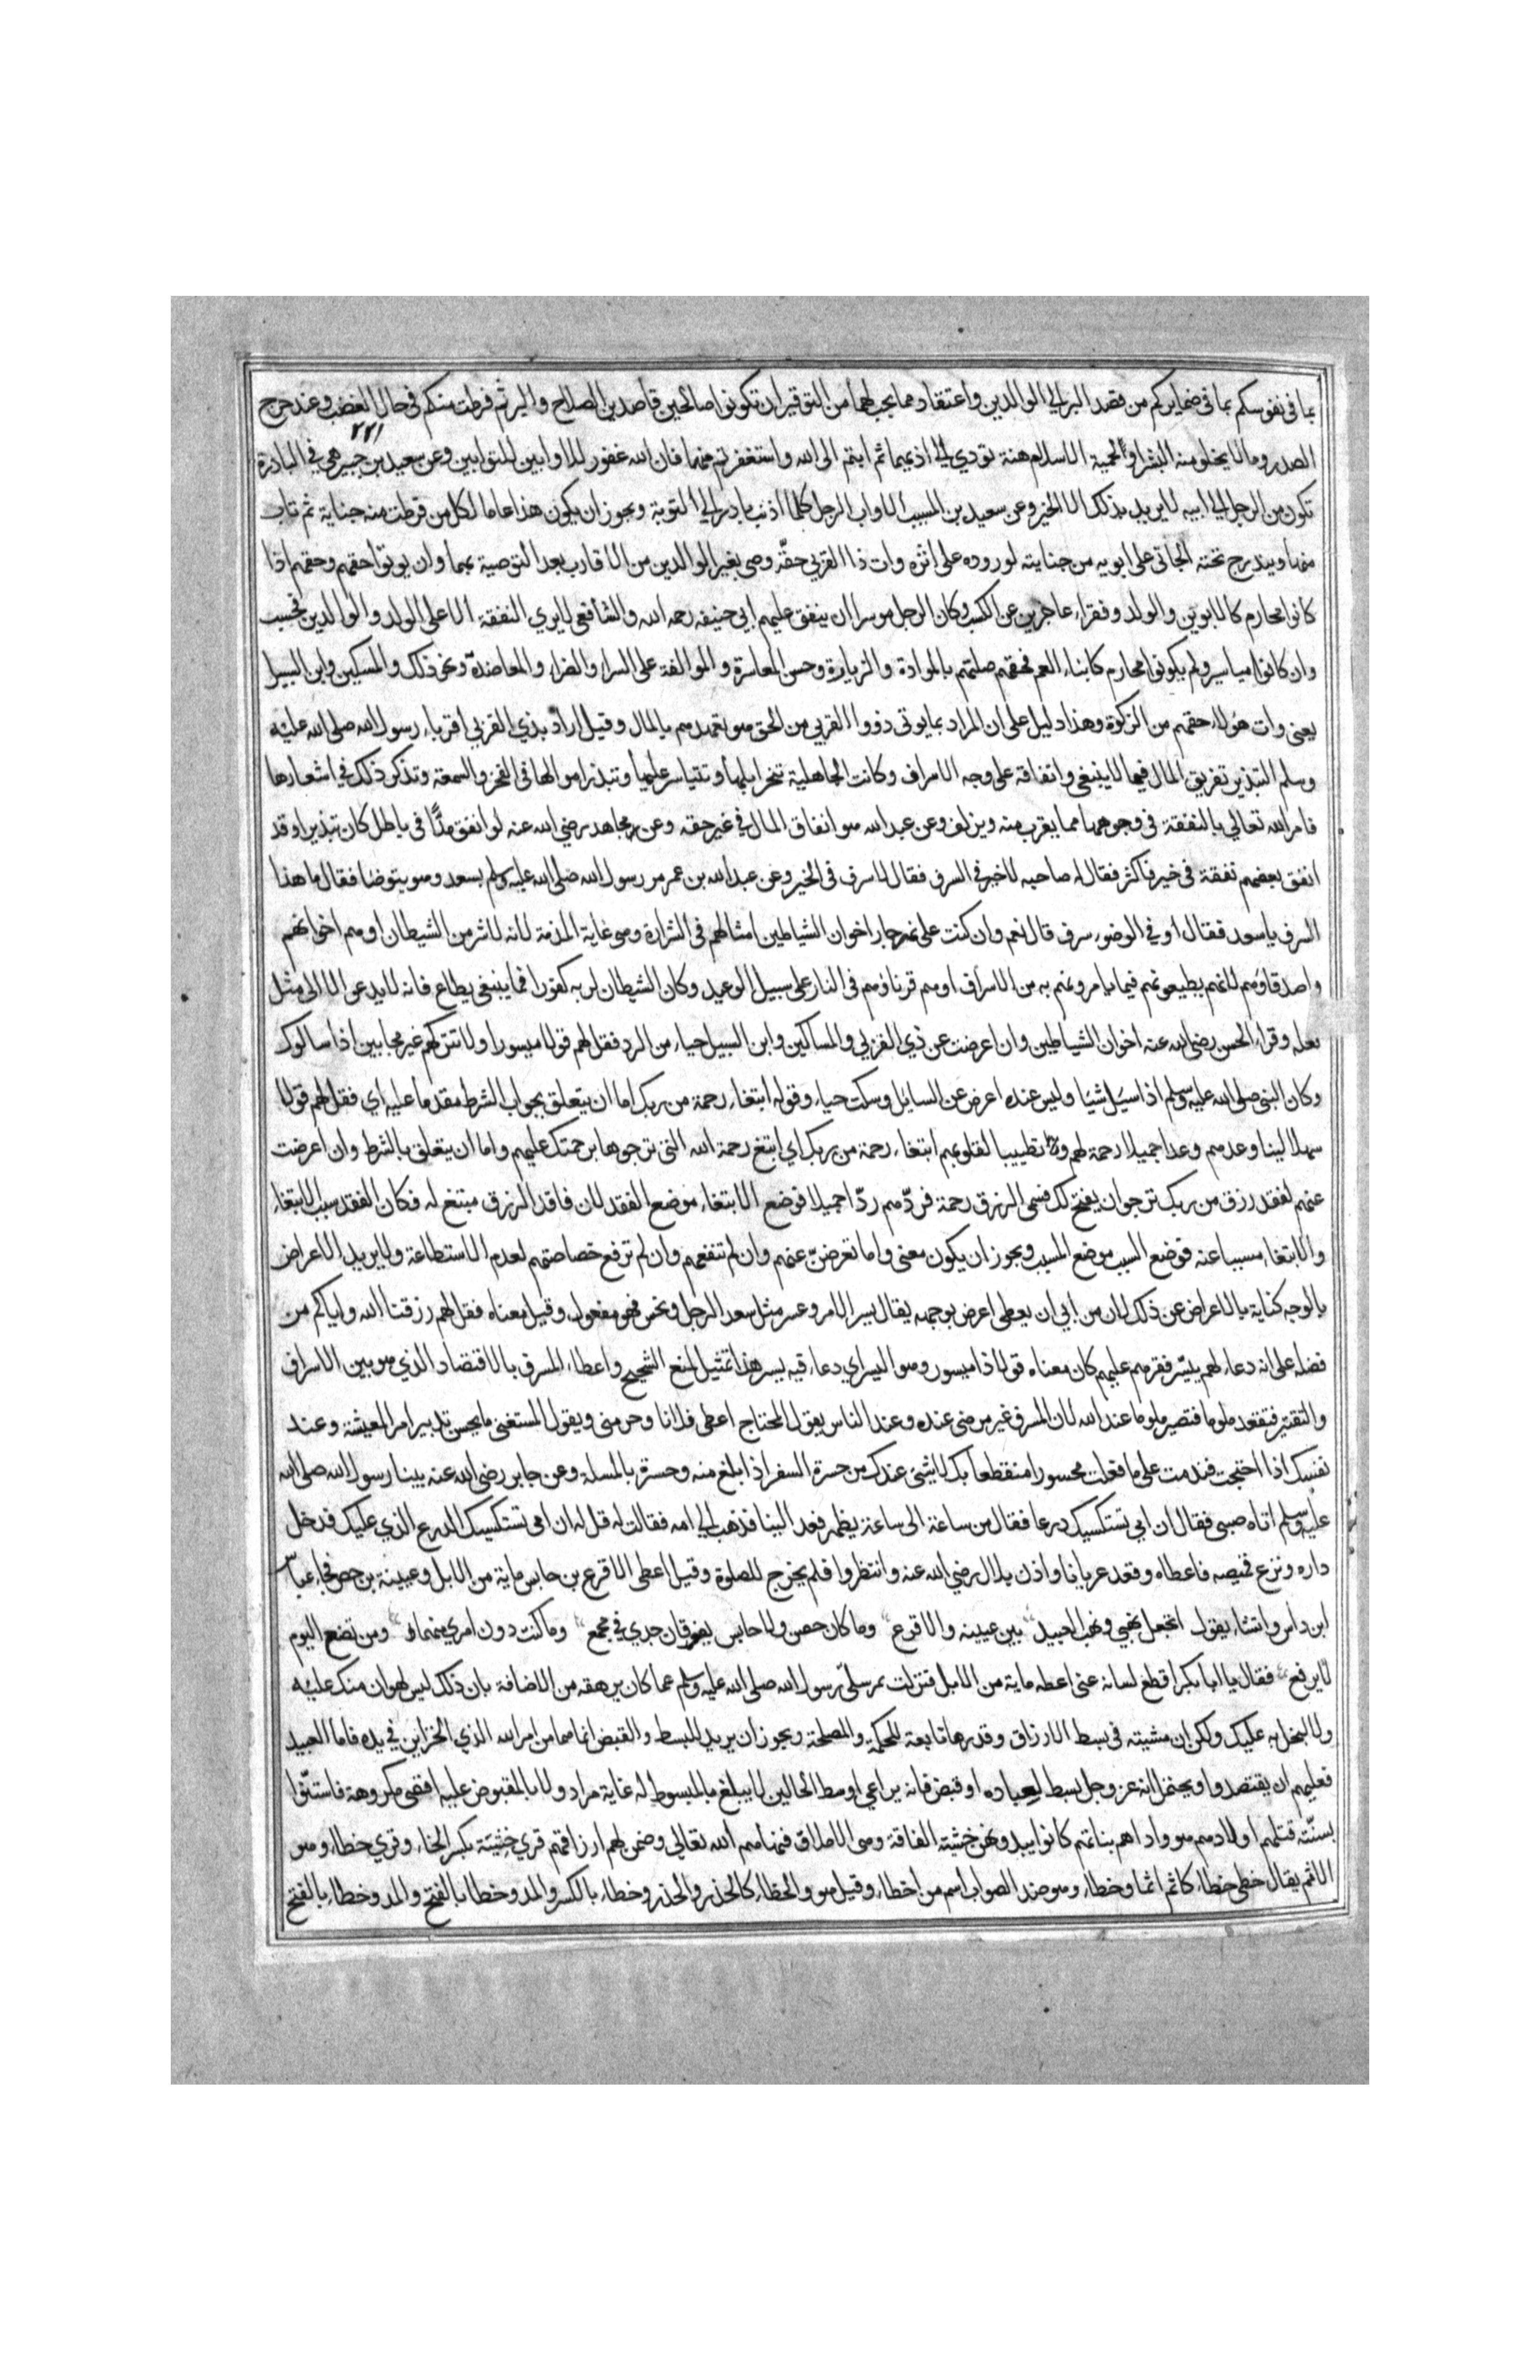 بما في نفوسكم بما في ضمايركم من قصد البر الي الوالدين واعتقاد مما يجب لهما من التوقير ان تكونوا صالحين قاصدين الصلاح والبر ثم فرطت منكم في حال الغضب وعند حرج
٢٢١
الصدر وما لا يخلو منه البشر او لحمية الاسلام هنة تودي الي اذيهما ثم ابتم الى الله واستغفرتم منها فان الله غفور للاوابين للتوابين وعن سعيد بن جبير هي في البادرة
تكون من الرجل الي ابيه لا يريد بذلك الا الخير وعن سعيد بن المسيب الاواب الرجل كلما اذنب بادر الي التوبة ويجوز ان يكون هذا عاما لكل من فرطت منه جناية ثم تاب
منها ويندرج تحته الجاني على ابويه من جنايته لوروده على اثره وات ذا القربي حقه وصي بغير الوالدين من الاقارب بعد التوصية بهما وان يوتوا حقهم وحقهم اذا
كانوا محارم كالابوين والولد وفقراء عاجزين عن الكسب وكان الرجل موسرا ان ينفق عليهم ابي حنيفه رحمه الله والشافعي لا يري النفقة الا على الولد والوالدين فحسب
وان كانوا مياسير ولم يكونوا محارم كابناء العم فحقهم صلتهم بالموادة والزيارة وحسن المعاشرة والموالفة على السرا والضرا والمعاضدة ونحو ذلك والمسكين وابن السبيل
يعني وات هولاء حقهم من الزكوة وهذا دليل على ان المراد بما يوتى ذووا القربي من الحق هو تعهدهم بالمال وقيل اراد بذي القربي اقرباء رسول الله صلى الله عليه
وسلم التبذير تفريق المال فيما لا ينبغي وانفاقه على وجه الاسراف وكانت الجاهلية تنحر ابلها وتتياسر عليها وتبذر اموالها في الفخر والسمعة وتذكر ذلك في اشعارها
فامر الله تعالي بالنفقة في وجوهها مما يقرب منه ويزلف وعن عبد الله هو انفاق المال في غير حقه وعن مجاهد رضي الله عنه لو انفق مدًّا في باطل كان تبذيرا وقد
انفق بعضهم نفقة في خير فاكثر فقال له صاحبه لا خير في السرف فقال لا سرف في الخير وعن عبد الله بن عمر مر رسول الله صلى الله عليه وسلم بسعد وهو يتوضا فقال ما هذا
السرف يا سعد فقال اوفي الوضوء سرف قال نعم وان كنت على نهر جار اخوان الشياطين امثالهم في الشرارة وهي غاية المذمة لانه لا شر من الشيطان او هم اخوانهم
واصدقاؤهم لانهم يطيعونهم فيما يامرونهم به من الاسراف او هم قرناؤهم في النار على سبيل الوعيد وكان الشيطان لربه كفورا فما ينبغي يطاع فانه لا يدعو الا الى مثل
فعله وقراء الحسن رضي الله عنه اخوان الشياطين وان اعرضت عن ذي القربي والمساكين وابن السبيل حياء من الرد فقل لهم قولا ميسورا ولا تتركهم غير مجابين اذا سالوك
وكان النبي صلى الله عليه وسلم اذا سئل شيئا وليس عنده اعرض عن السايل وسكت حياء وقوله ابتغاء رحمة من ربك اما ان يتعلق بجواب الشرط مقدما عليه اي فقل لهم قولا
سهلا لينا وعدهم وعدا جميلا رحمة لهم تطييبا لقلوبهم ابتغاء رحمة من ربك اي ابتغ رحمة الله التي ترجوها برحمتك عليهم واما ان يتعلق بالشرط وان اعرضت
عنهم لفقد رزق من ربك ترجو ان يفتح لك فسمى الرزق رحمة فردّهم ردّا جميلا فوضع الابتغاء موضع الفقد لان فاقد الرزق مبتغ له فكان الفقد سبب الابتغاء
والابتغاء مسببا عنه فوضع السبب موضع المسبب ويجوز ان يكون معنى واما تعرضن عنهم وان لم تنفعهم وان لم ترفع خصاصتهم لعدم الاستطاعة ولا يريد الاعراض
بالوجه كناية بالاعراض عن ذلك لان من ابي ان يعطى اعرض بوجهه يقال يسر الامر وعسر مثل سعد الرجل ونحس فهو مفعول وقيل معناه فقل لهم رزقنا الله واياكم من
فضله على انه دعاء لهم ييسّر فقرهم عليهم كان معناه قولا ذا ميسور وهو اليسر اي دعاء فيه يسر هذا تمثيل لمنع الشحيح واعطاء المسرف بالاقتصاد الذي هو بين الاسراف
والتقتير فتقعد ملوما فتصير ملوما عند الله لان المسرف غير مرضي عنده وعند الناس يقول المحتاج اعطى فلانا وحرمني ويقول المستغنى ما يحسن تدبير امر المعيشة وعند
نفسك اذا احتجت فندمت على ما فعلت محسورا منقطعا بك لا يشئ عندك من حسرة السفر اذا ابلغ منه وحسرة بالمسلة وعن جابر رضي الله عنه بينا رسول الله صلى الله
عليه وسلم اتاه صبى فقال ان امي تستكسيك درعا فقال من ساعة الى ساعة يظهر فعد الينا فذهب الي امه فقالت له قل له ان امي تستكسيك الدرع الذي عليك فدخل
داره ونزع قميصه فاعطاه وقعد عريانا واذن بلال رضي الله عنه وانتظروا فلم يخرج للصلوة وقيل اعطى الاقرع بن حابس ماية من الابل وعيينة بن حصن فجاء عباس
ابن داس وانشاء يقول اتجعل نهبي ونهب العبيد بين عيينه والاقرع وما كان حصن ولا حابس يفوقان جدي في مجمع وما كنت دون امري منهما ومن تضع اليوم
لا يرفع فقال يا ابا بكر اقطع لسانه عني اعطه ماية من الابل فنزلت ثم سلّى رسول الله صلى الله عليه وسلم عما كان يرهقه من الاضافة بان ذلك ليس لهوان منك عليه
ولا لبخل به عليك ولكن ان مشيته في بسط الارزاق وقدرها تابعة للحكمة والمصلحة ويجوز ان يريد البسط والقبض انما هما من امر الله الذي الخزاين في يده فاما العبيد
فعليهم ان يقتصدوا ويحتمل انه عز وجل بسط لعباده او قبض فانه يراعي اوسط الحالين لا يبلغ بالمبسوط له غاية مراد ولا بالمقبوض عليه اقصى مكروهة فاستنّوا
بسنّته قتلهم اولادهم هو واداهم بناتهم كانوا يبدونهن خشية الفاقة وهي الاملاق فنهاهم الله تعالى وضمن لهم ارزاقهم قري خشية بكسر الخاء وقري خطاء وهو
الاثم يقال خطى خطاء كاثم اثما وخطاء وهو ضد الصواب اسم من اخطاء وقيل هو والخطاء كالحذر والحذر وخطاء بالكسر والمد وخطا بالفتح والمد وخطاء بالفتح